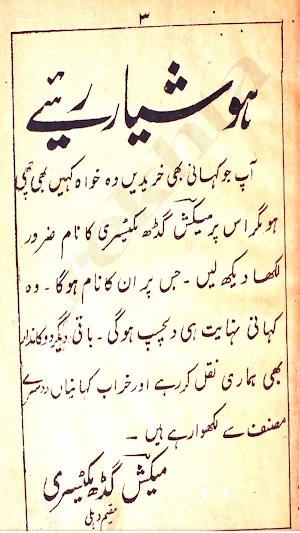 ۳
ہوشیار رہئیے
آپ جو کہانی بھی خریدیں وہ خواہ کہیں بھی چھپی
ہو مگر اس پر میکش گڈھ مکٹیسری کا نام ضرور
لکھا دیکھ لیں۔ جس پر ان کا نام ہوگا۔ وہ
کہانی نہایت ہی دلچسپ ہوگی۔ باقی دیگر دوکاندار
بھی ہماری نقل کر رہے اور خراب کہانیاں دوسرے
مصنف سے لکھوا رہے ہیں۔
میکش گڈھ مکٹیسری
مقیم دہلی